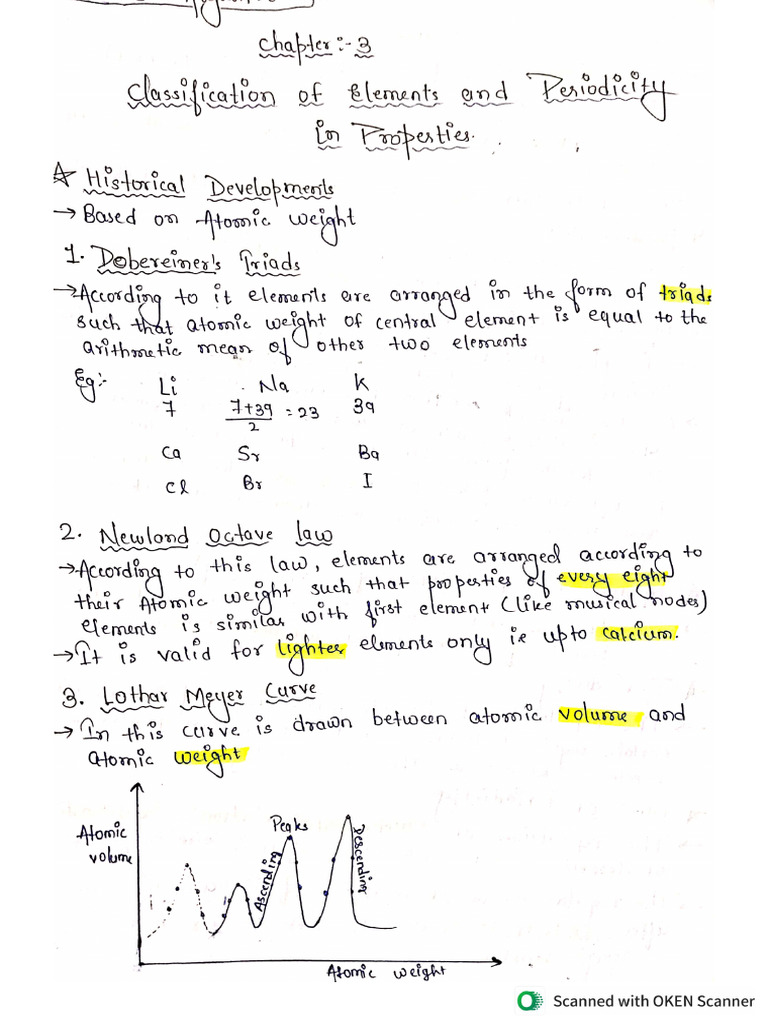 Chapter:- 3
Classification of Elements and Periodicity
in Properties.
Historical Developments
→ Based on Atomic Weight
1. Dobereiner's Triads
→ According to it elements are arranged in the form of triads
such that atomic weight of central element is equal to the
arithmetic mean of other two elements
Eg:- Li Na K
7 7+39/2 = 23 39
Ca Sr Ba
Cl Br I
2. Newlond Octave law
→ According to this law, elements are arranged according to
their Atomic weight such that properties of every eight
elements is similar with first element (like musical nodes)
→ It is valid for lighter elements only ie upto calcium.
3. Lothar Meyer Curve
→ In this curve is drawn between atomic volume and
atomic weight
Atomic
volume
Peaks
Ascending
Descending
Atomic weight
Scanned with OKEN Scanner